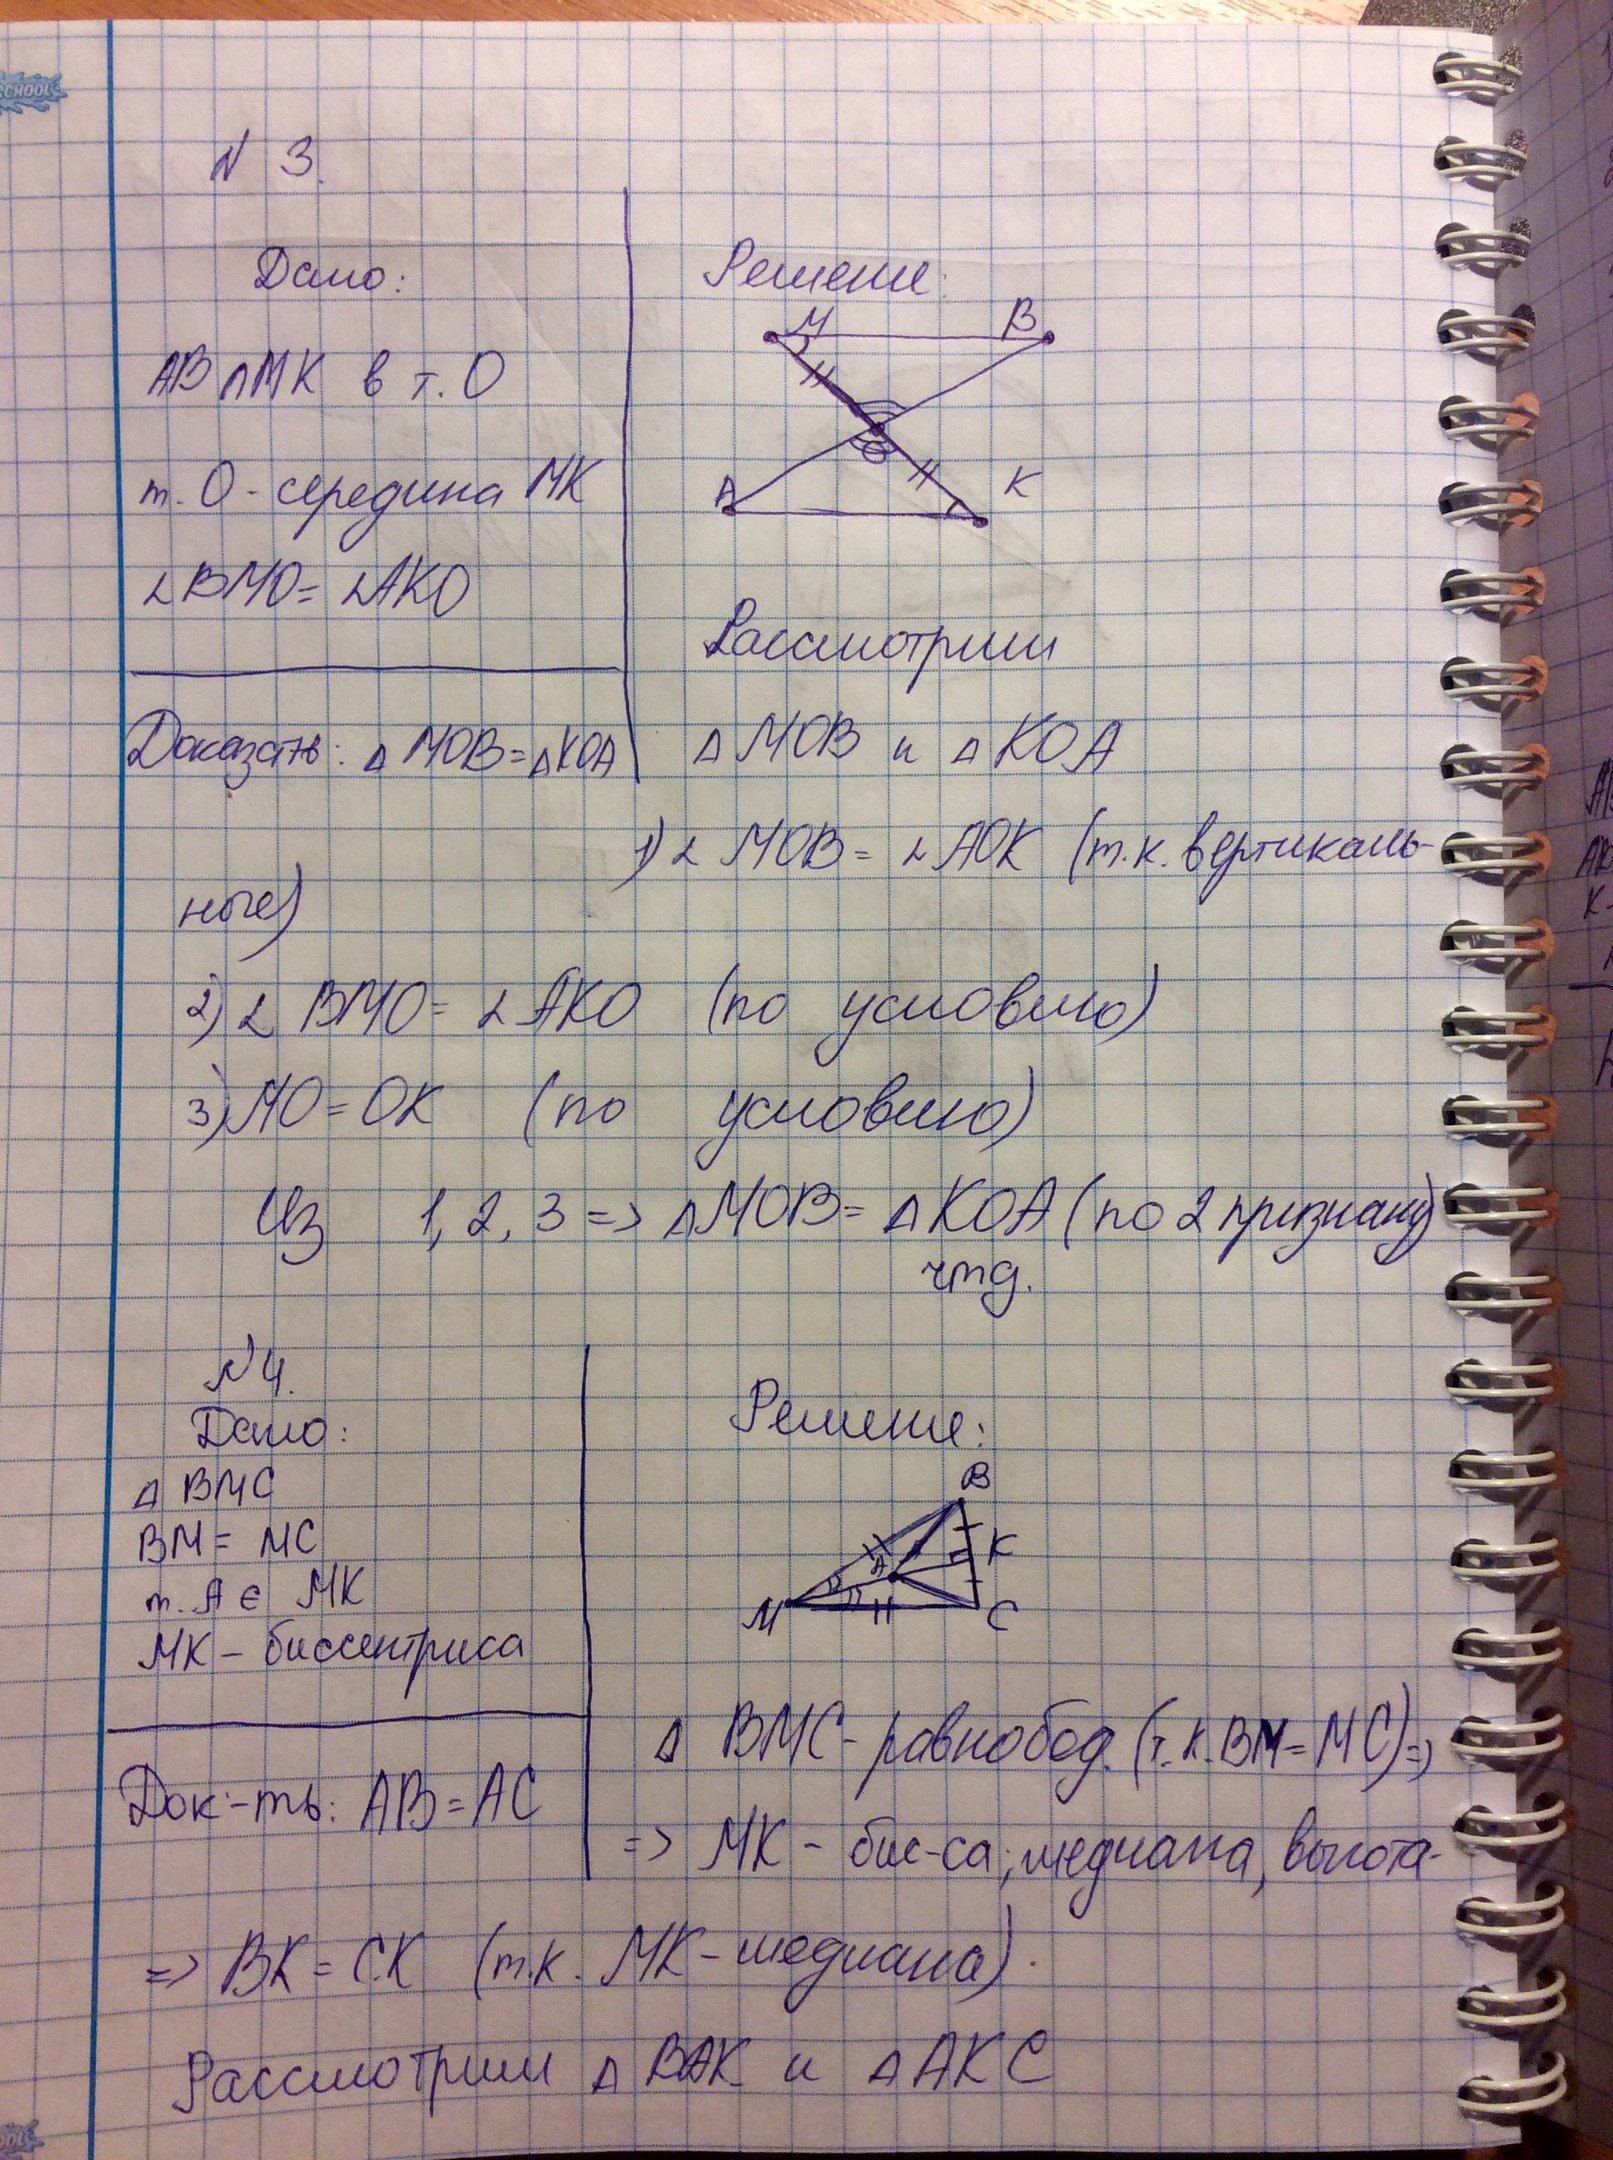 SCHOOL
N 3.
Дано:
AB ∩ MK в т. O
т. O - середина MK
∠BMO = ∠AKO
Доказать: △ MOB = △ KOA
Решение:
M B
O
A K
Рассмотрим
△ MOB и △ KOA
1) ∠ MOB = ∠ AOK (т.к. вертикаль-
ные)
2) ∠ BMO = ∠ AKO (по условию)
3) MO = OK (по условию)
Из 1, 2, 3 => △ MOB = △ KOA (по 2 признаку)
чтд.
N 4.
Дано:
△ BMC
BM = MC
т. A ∈ MK
MK - биссектриса
Док-ть: AB = AC
Решение:
B
A K
M C
△ BMC - равнобед. (т.к. BM = MC) =>
=> MK - бис-са, медиана, высота -
=> BK = CK (т.к. MK - медиана).
Рассмотрим △ BAK и △ AKC